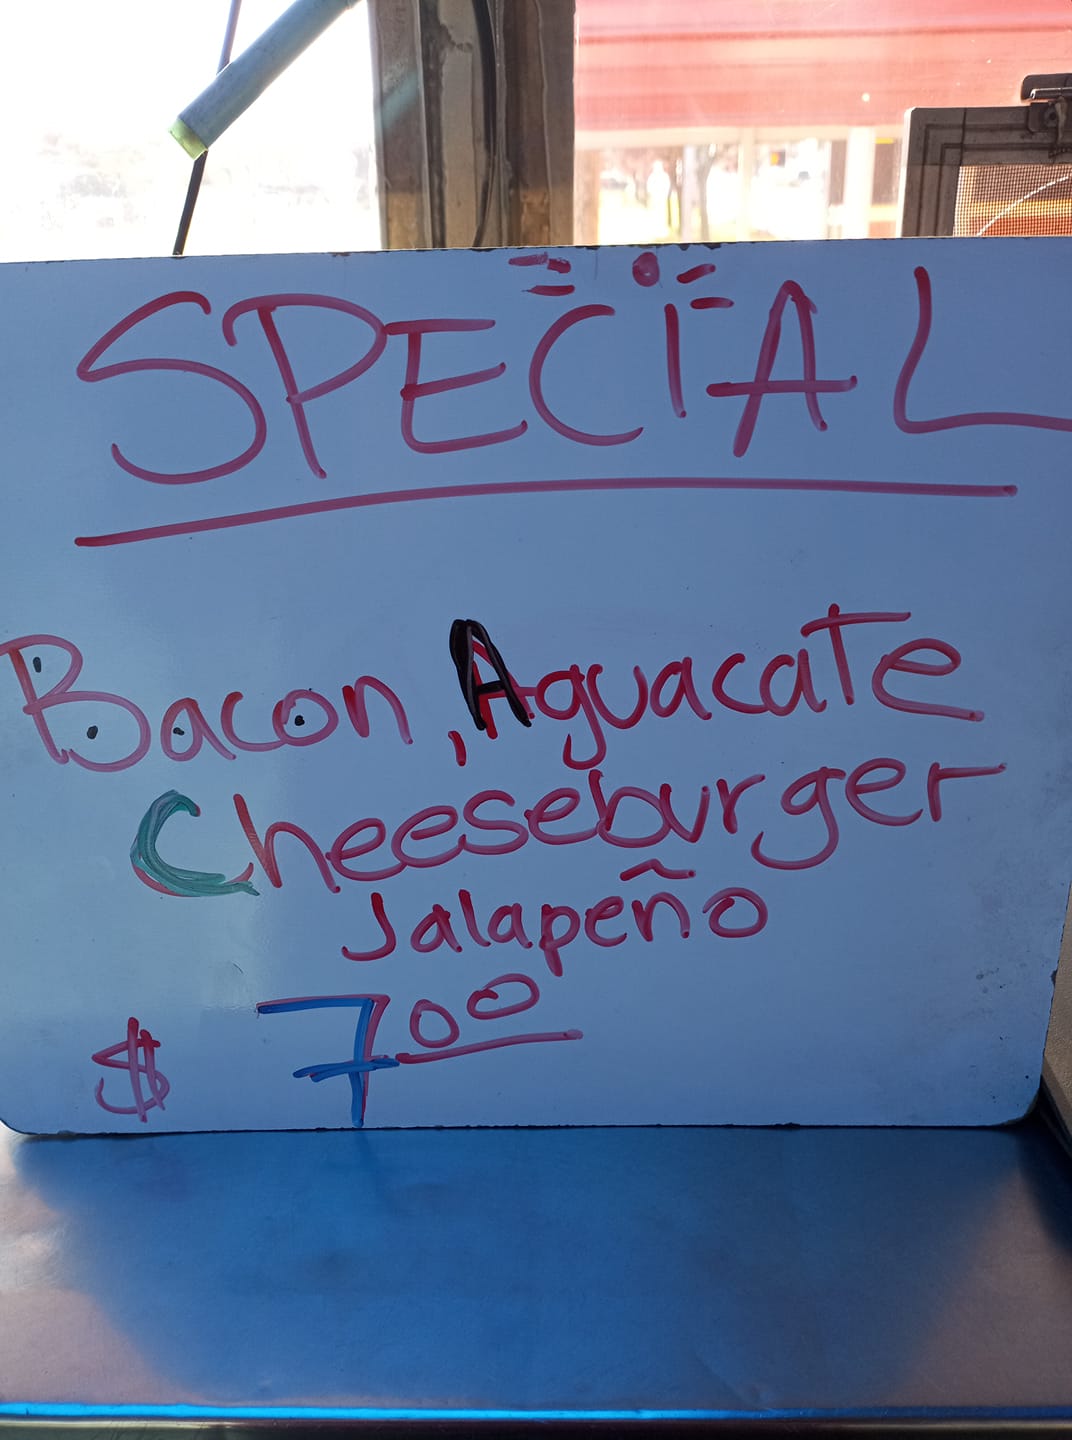 SPECIAL
Bacon, Aguacate
Cheeseburger
Jalapeño
$ 7.00